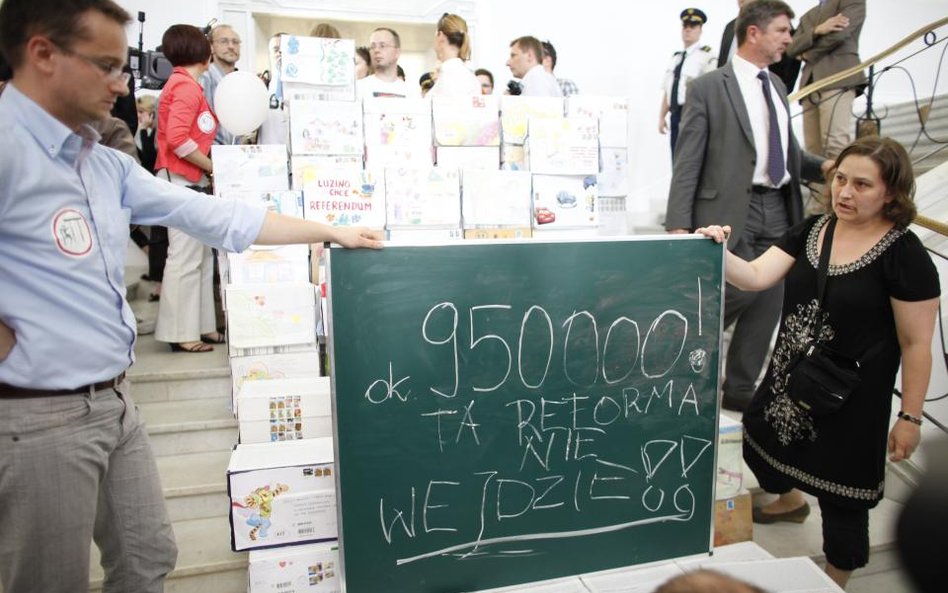 LUZINO
CHCE
REFERENDUM
ok. 950000!
TA REFORMA
NIE
WEJDZIE !!